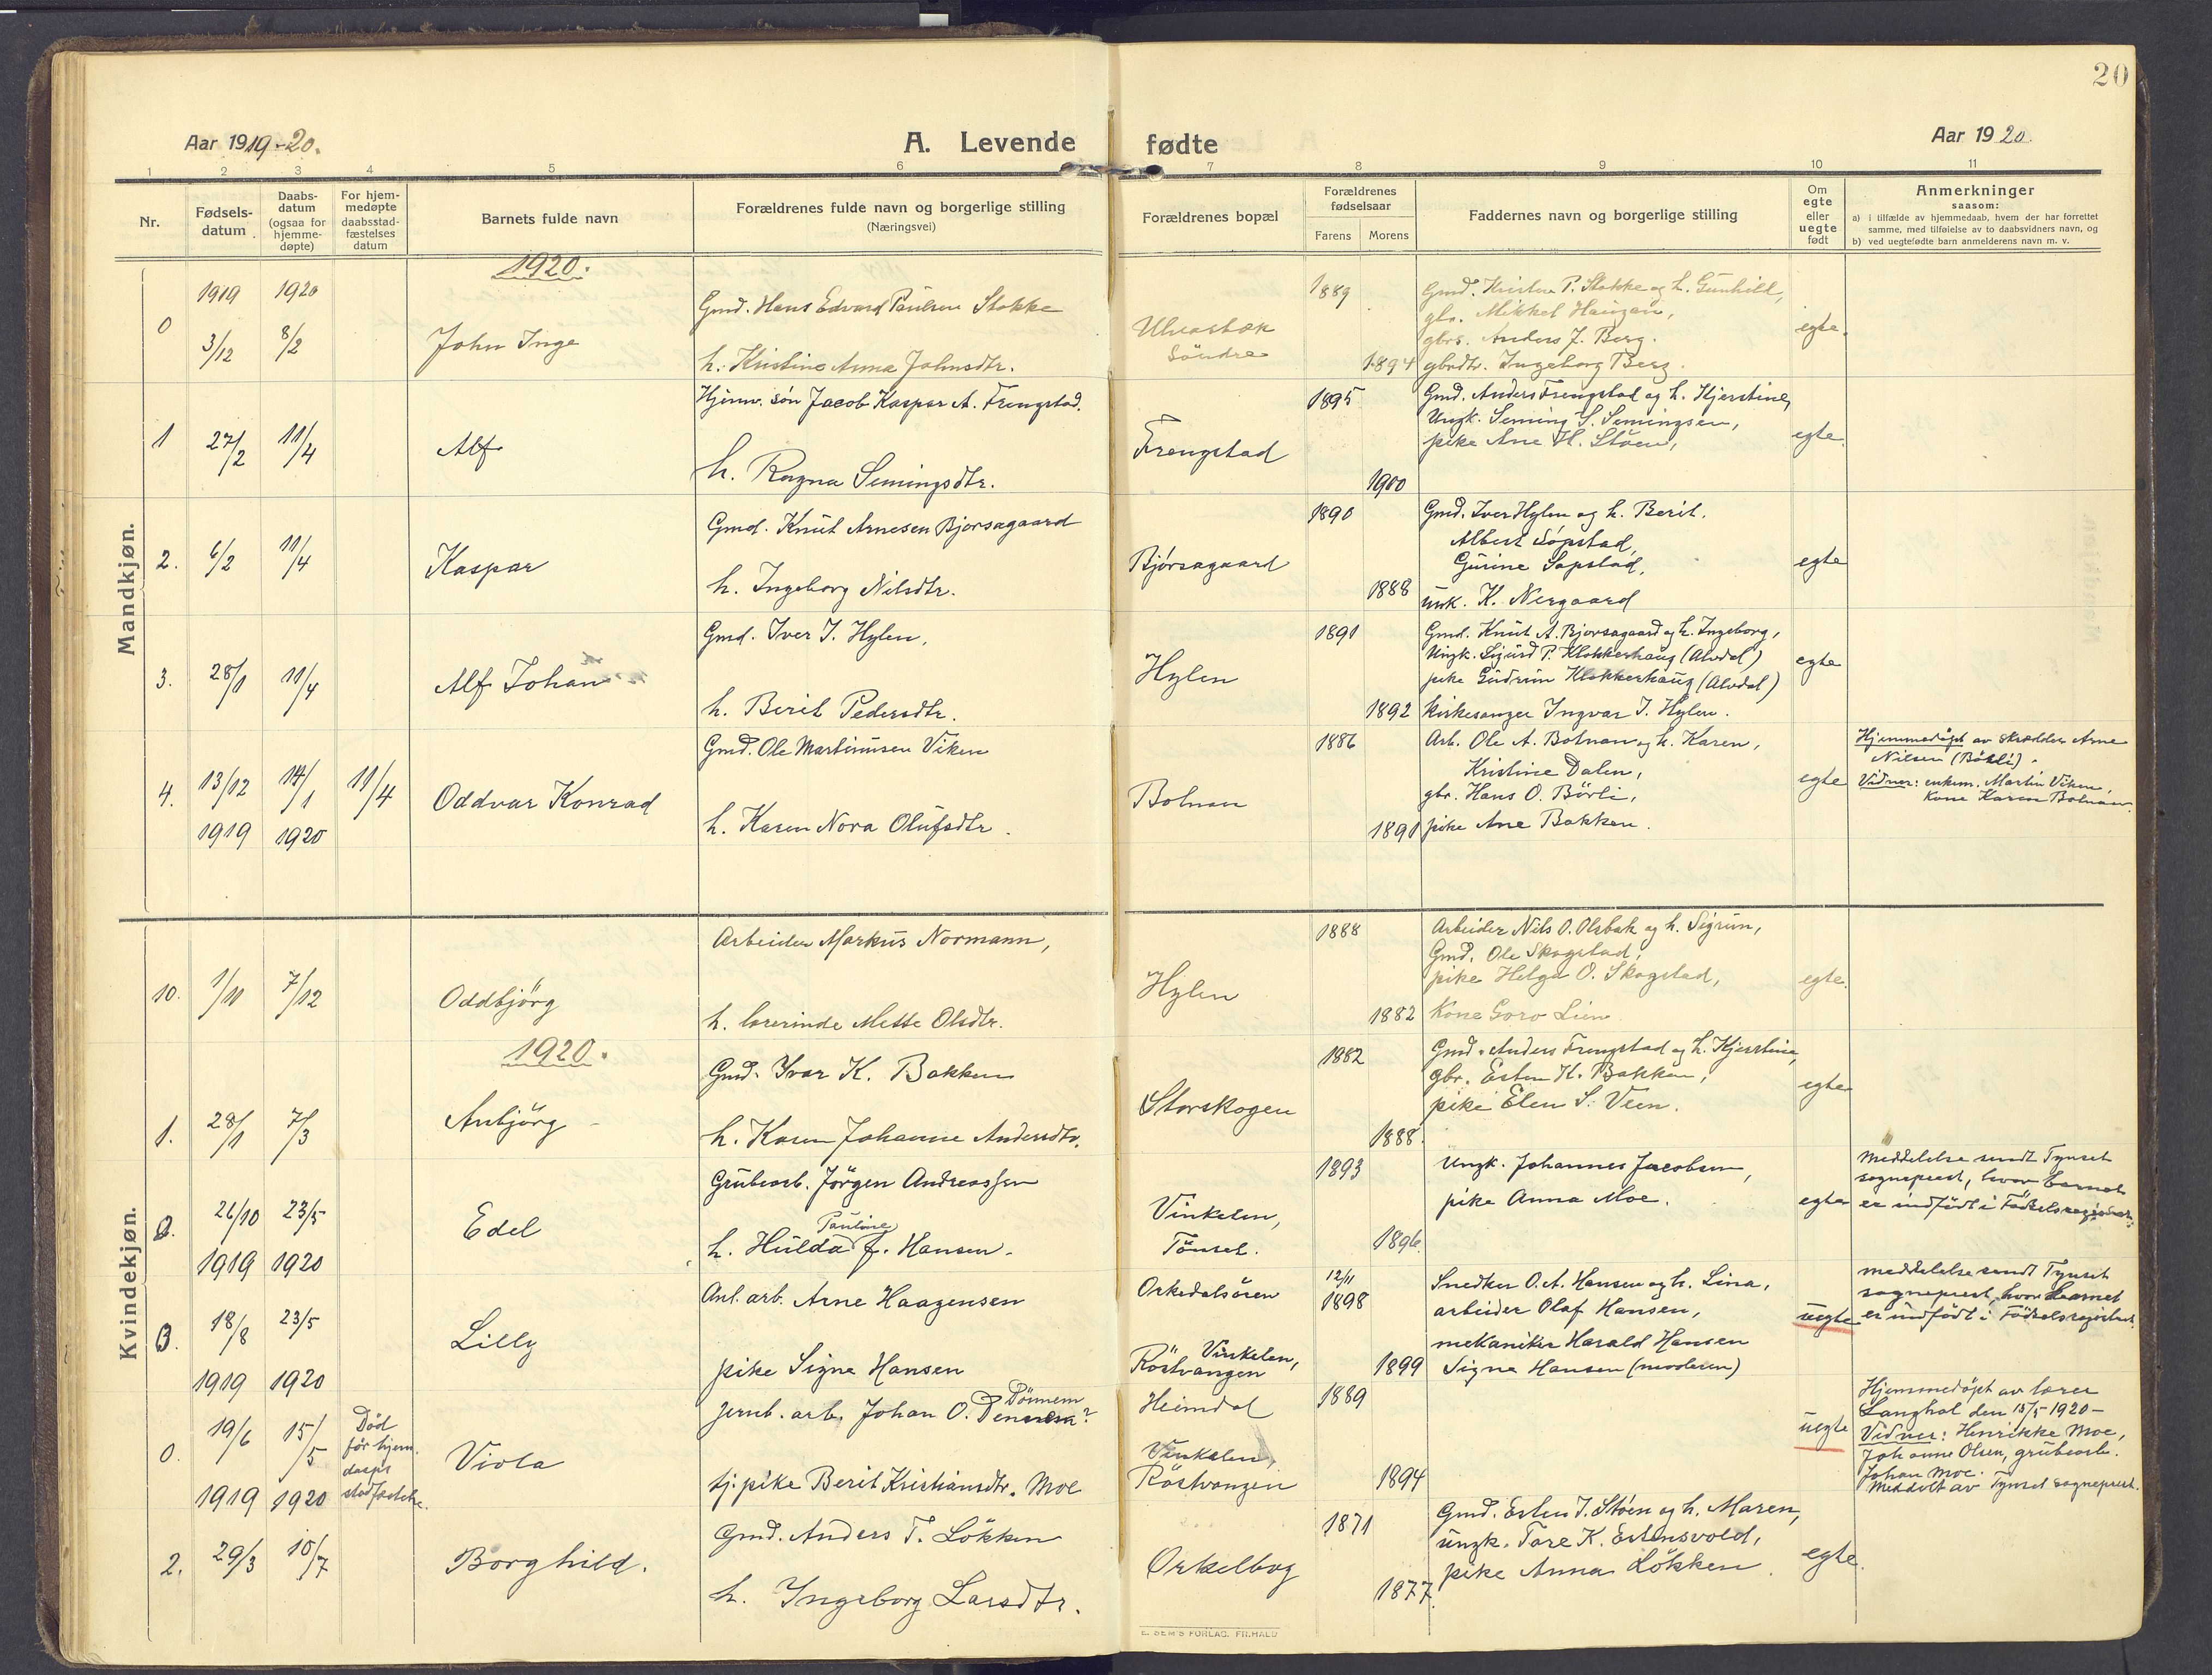 20
Aar 1919-20.
A. Levende fødte
Aar 1920.
1 2 3 4 5 6 7 8 9 10 11
Nr.
Fødsels-
datum
Daabs-
datum
(ogsaa for
hjemme-
døpte)
For hjem-
medøpte
daabsstad-
fæstelses
datum
Barnets fulde navn
Forældrenes fulde navn og borgerlige stilling
(Næringsvei)
Forældrenes bopæl
Forældrenes
fødselsaar
Farens Morens
Faddernes navn og borgerlige stilling
Om
egte
eller
uegte
født
Anmerkninger
saasom:
a) i tilfælde av hjemmedaab, hvem der har forrettet
samme, med tilføielse av to daabsvidners navn, og
b) ved uegtefødte barn anmelderens navn m. v.
Mandkjøn.
1920.
0
1919 1920
3/12 8/2
John Inge
Gmd. Hans Edvard Paulsen Stokke
h. Kristine Anna Johnsdtr.
Søndre
1889
1894
Gmd. P. Stokke og h. Gunhild,
gbr. Mikkel Haugan,
gbrs. Anders J. Berg.
gbrdtr. Ingeborg Berg.
egte.
1
27/2 11/4
Alf
Hjemv. søn Jacob Kaspar A. Frengstad.
h. Ragna Semingsdtr.
Frengstad
1895
1900
Gmd. Anders Frengstad og h. Kjerstine,
Ungk. Seming S. Semingsen,
pike Ane H. Støen,
egte.
2.
6/2 11/4
Kaspar
Gmd. Knut Arnesen Bjørsagaard
h. Ingeborg Nilsdtr.
Bjørsagaard
1890
1888
Gmd. Iver Hylen og h. Berit.
Albert Søpstad,
Gurine Søpstad,
ungk. K. Nergaard
egte
3.
28/1 11/4
Alf Johan
Gmd. Iver I. Hylen,
h. Berit Pedersdtr.
Hylen
1891
1892
Gmd. Knut A. Bjørsagaard og h. Ingeborg,
Ungk. Sigurd P. Klokkerhaug (Alvdal)
pike Gudrun Klokkerhaug (Alvdal)
kirkesanger Ingvar I. Hylen.
egte
4.
13/12 14/1 11/4
1919 1920
Oddvar Konrad
Gmd. Ole Martinusen Viken
h. Karen Nora Olufsdtr.
Bolnan
1886
1891
Arb. Ole A. Bolnan og h. Karen,
Kristine Dalen,
gbr. Hans O. Börli,
pike Ane Bakken.
egte
Hjemmedøpt av skrædder Arne
Nilsen (Bökli).
Vidner: enkem. Martin Viken,
Kone Karen Bolnan.
Kvindekjøn.
10.
1/11 7/12
Oddbjörg
Arbeider Markus Normann,
h. lærerinde Mette Olsdtr.
Hylen
1888
1882
Arbeider Nils O. Olsbak og h. Sigrun,
Gmd. Ole Skogstad,
pike Helga O. Skogstad,
Kone Goro Lien
egte.
1920.
1.
28/1 7/3
Anbjörg
Gmd. Ivar K. Bakken
h. Karen Johanne Andersdtr.
Storskogen
1882
1888.
Gmd. Anders Frengstad og h. Kjerstine,
gbr. Esten K. Bakken,
pike Elen S. Veen.
egte
0.
26/10 23/5
1919 1920
Edel
Grubearb. Jørgen Andreassen
Pauline
h. Hulda f. Hansen.
Vinkelen,
Tönset.
1893
1896.
Ungk. Johannes Jacobsen,
pike Anna Moe.
egte
meddelelse sendt Tynset
sogneprest, hvor barnet
er indfödt i Födselsregisteret.
0.
18/8 23/5
1919 1920
Lilly
Anl. arb. Arne Haagensen
pike Signe Hansen
Orkedalsören
Vinkelen,
Röstvangen
12/11
1898
1899
Snedker O. A. Hansen og h. Lina,
arbeider Olaf Hansen,
mekaniker Harald Hansen
Signe Hansen (moderen)
uegte
meddelelse sendt Tynset
sogneprest, hvor barnet
er indfödt i Födselsregisteret.
0.
19/6 15/5
1919 1920
Död
för hjem.
daaps
stadfæstelse.
Viola
Dönnem
jernb. arb. Johan O. ?
tj. pike Berit Kristiansdtr. Moe
Heimdal
Vinkelen,
Röstvangen
1889
1894
uegte
Hjemmedöpt av lærer
Langhol den 15/5 1920 -
Vidner: Henrikke Moe,
Johanne Olsen, grubearb.
Johan Moe.
Meddelt av Tynset sogneprest.
2.
29/3 10/7
Borghild.
Gmd. Anders T. Lökken
h. Ingeborg Larsdtr.
Orkelbog
1871
1877.
Gmd. Esten J. Støen og h. Maren,
ungk. Tore K. Estensvold,
pike Anna Lökken.
egte.
E. SEM'S FORLAG, FR.HALD